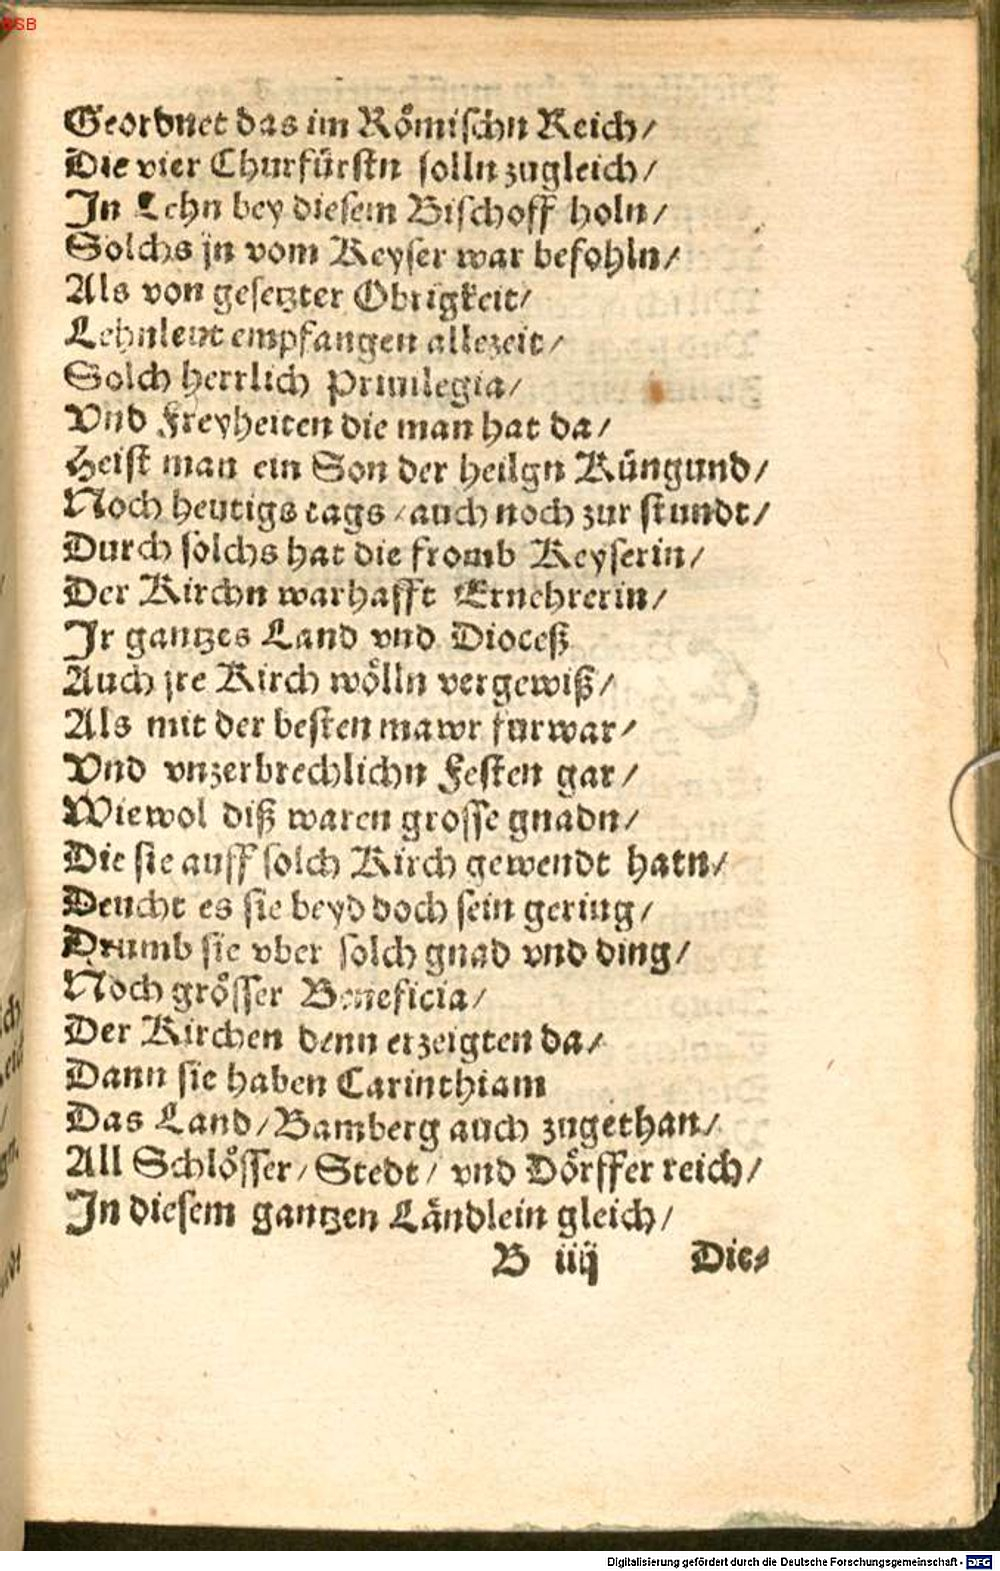 BSB
Geordnet das im Römischn Reich/
Die vier Churfürstn solln zugleich/
Jn Lehn bey diesem Bischoff holn/
Solchs jn vom Keyser war befohln/
Als von gesetzter Obrigkeit/
Lehnleut empfangen allezeit/
Solch herrlich Priuilegia/
Vnd Freyheiten die man hat da/
Heist man ein Son der heilgn Küngund/
Noch heutigs tags/auch noch zur stundt/
Durch solchs hat die fromb Keyserin/
Der Kirchn warhafft Ernehrerin/
Jr gantzes Land vnd Dioceß
Auch jre Kirch wölln vergewiß/
Als mit der besten mawr furwar/
Vnd vnzerbrechlichn Festen gar/
Wiewol diß waren grosse gnadn/
Die sie auff solch Kirch gewendt hatn/
Deucht es sie beyd doch sein gering/
Drumb sie vber solch gnad vnd ding/
Noch grösser Beneficia/
Der Kirchen denn erzeigten da/
Dann sie haben Carinthiam
Das Land/Bamberg auch zugethan/
All Schlösser/Stedt/ vnd Dörffer reich/
Jn diesem gantzen Ländlein gleich/
B iiij Die-
Digitalisierung gefördert durch die Deutsche Forschungsgemeinschaft - DFG